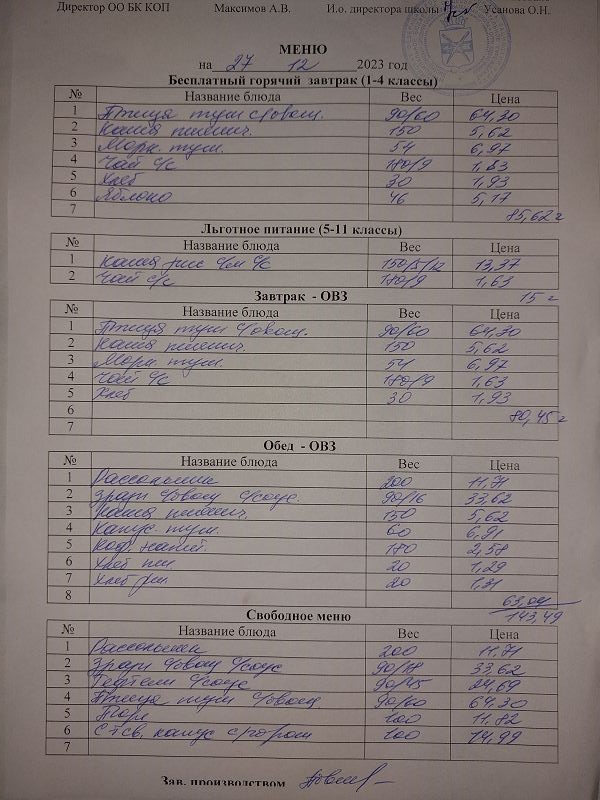 Директор ОО БК КОП Максимов А.В. И.о. директора школы Усанова О.Н.
МЕНЮ
на 27 12 2023 год
Бесплатный горячий завтрак (1-4 классы)
№ Название блюда Вес Цена
1 Птица туш с/овощ. 90/60 64,30
2 Каша пшенич. 150 5,62
3 Морк. туш. 54 6,97
4 Чай с/с 180/9 1,63
5 Хлеб 30 1,93
6 Яблоко 46 5,17
7 85,62
Льготное питание (5-11 классы)
№ Название блюда Вес Цена
1 Каша рис с/м с/с 150/5/12 13,37
2 Чай с/с 180/9 1,63
15
Завтрак - ОВЗ
№ Название блюда Вес Цена
1 Птица туш с/овощ. 90/60 64,30
2 Каша пшенич. 150 5,62
3 Морк. туш. 54 6,97
4 Чай с/с 180/9 1,63
5 Хлеб 30 1,93
6 80,45
7
Обед - ОВЗ
№ Название блюда Вес Цена
1 Рассольник 200 11,71
2 Зразы с/овощ с/соус. 90/16 33,62
3 Каша пшенич. 150 5,62
4 Капус. туш. 60 6,91
5 Коф. напит. 180 2,58
6 Хлеб пш 20 1,29
7 Хлеб рж 20 1,31
8 63,04
143,49
Свободное меню
№ Название блюда Вес Цена
1 Рассольник 200 11,71
2 Зразы с/овощ с/соус 90/18 33,62
3 Тефтели с/соус 90/45 24,69
4 Птица туш с/овощ 90/60 64,30
5 100 11,82
6 капус с/горош 100 14,99
7
Зав. производством